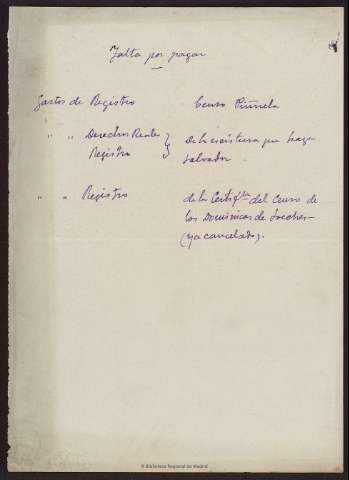 Falta por pagar
Gastos de Registro Censo Piñuela
" " Derechos Reales } De la escritura que haga
Registro } Salvador.
" " Registro de la Certif.ón del Censo de
los Dominicos de Loeches
(ya cancelado).
© Biblioteca Regional de Madrid